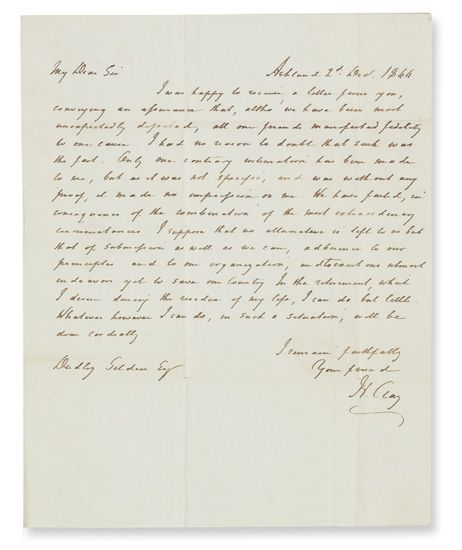 Ashland 2d. Decr. 1844
My Dear Sir
I was happy to receive a letter from you,
conveying an assurance that, altho' we have been most
unexpectedly defeated, all our friends manifested fidelity
to our cause. I had no reason to doubt that such was
the fact. Only one contrary intimation has been made
to me, but as it was not specific, and was without any
proof, it made no impression on me. We have failed, in
consequence of the combination of the most extraordinary
circumstances. I suppose that no alternative is left to us but
that of submission as well as we can, adherence to our
principles and to our organization, and to our utmost
endeavors yet to save our Country. In the retirement, which
I desire during the residue of my life, I can do but little.
Whatever however I can do, in such a situation, will be
done cordially.
I remain faithfully
Your friend
H. Clay
Dudley Selden Esq